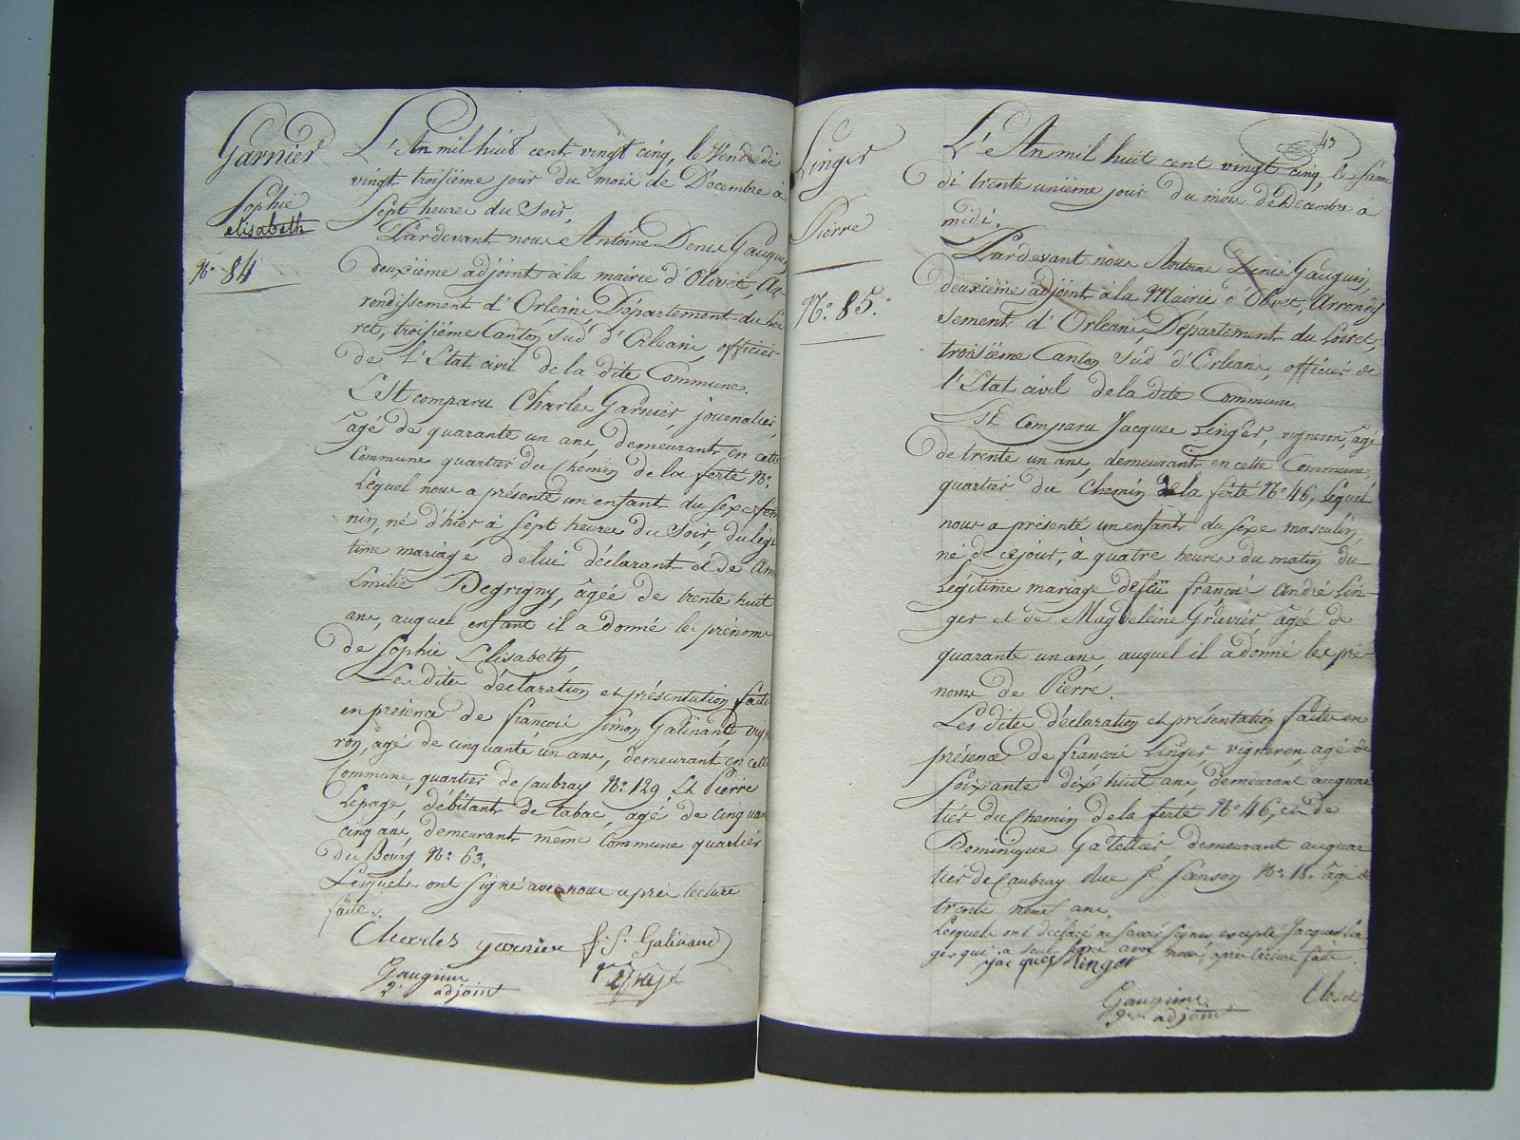 Garnier
Sophie
elisabeth
N.° 84
L'An mil huit cent vingt cinq, le Vendredi
vingt troisième jour du mois de Décembre a
Sept heure du Soir,
Pardevant nous Antoine Denis Gauguin,
deuxième adjoint à la mairie d'Olivet, Ar-
rondissement d'Orleans Département du Loi
ret, troisième Canton Sud d'Orleans, officier
de l'Etat civil de la dite Commune.
Est comparu Charles Garnier, journalier,
agé de quarante un ans, demeurant en cette
Commune quartier du Chemin de la ferté N.°
Lequel nous a présenté un enfant du sexe fem
nin, né d'hier à Sept heure du Soir, du légi
time mariage de lui déclarant et de
Emilie Degrigny, âgée de trente huit
ans, auquel enfant il a donné les prénoms
de Sophie Elisabeth,
Les dites déclaration et présentation faite
en présence de françois Simon Galinand, vigne
ron, âgé de cinquante un ans, demeurant en cette
Commune, quartier de Caubray N.° 129 Et Pierre
Lepage, débitant de tabac, agé de cinquan
cinq ans, demeurant même Commune quartier
du Bourg N.° 63.
Lesquels ont signé avec nous apres lecture
faite.
Charles garnier f. S. Galinand
Gauguin
2e adjoint
Linger
Pierre
N.° 85.
43
L'An mil huit cent vingt cinq, le Same
di trente unième jour du mois de Décembre a
midi.
Pardevant nous Antoine Denis Gauguin,
deuxième adjoint à la Mairie d'Olivet, Arrondis
sement d'Orleans, Département du Loiret,
troisième Canton Sud d'Orleans, officier de
l'Etat civil de la dite Commune.
Est Comparu Jacques Linger, vigneron, agé
de trente un ans, demeurant en cette Commune,
quartier du Chemin de la ferté N.° 46, Lequel
nous a présenté un enfant du sexe masculin,
né de ce jour, à quatre heures du matin du
Légitime mariage de feu françois andré Lin-
ger et de Magdeleine Gravier âgée de
quarante un ans, auquel il a donné le pré-
nom de Pierre.
Les dites déclaration et présentation faite en
présence de françois Linger vigneron, agé de
soixante dix huit ans, demeurant au quar
tier du Chemin de la ferté N.° 46, et de
Dominique Gatellier demeurant au quar
tier de Caubray Rue St. Sanson N.° 18. âgé de
trente neuf ans.
Lesquels ont déclaré ne savoir signer excepté Jacques Lin
ger qui a seul signé avec nous, apres lecture faite.
jacques linger
Gauguin
2e adjoint
Clos